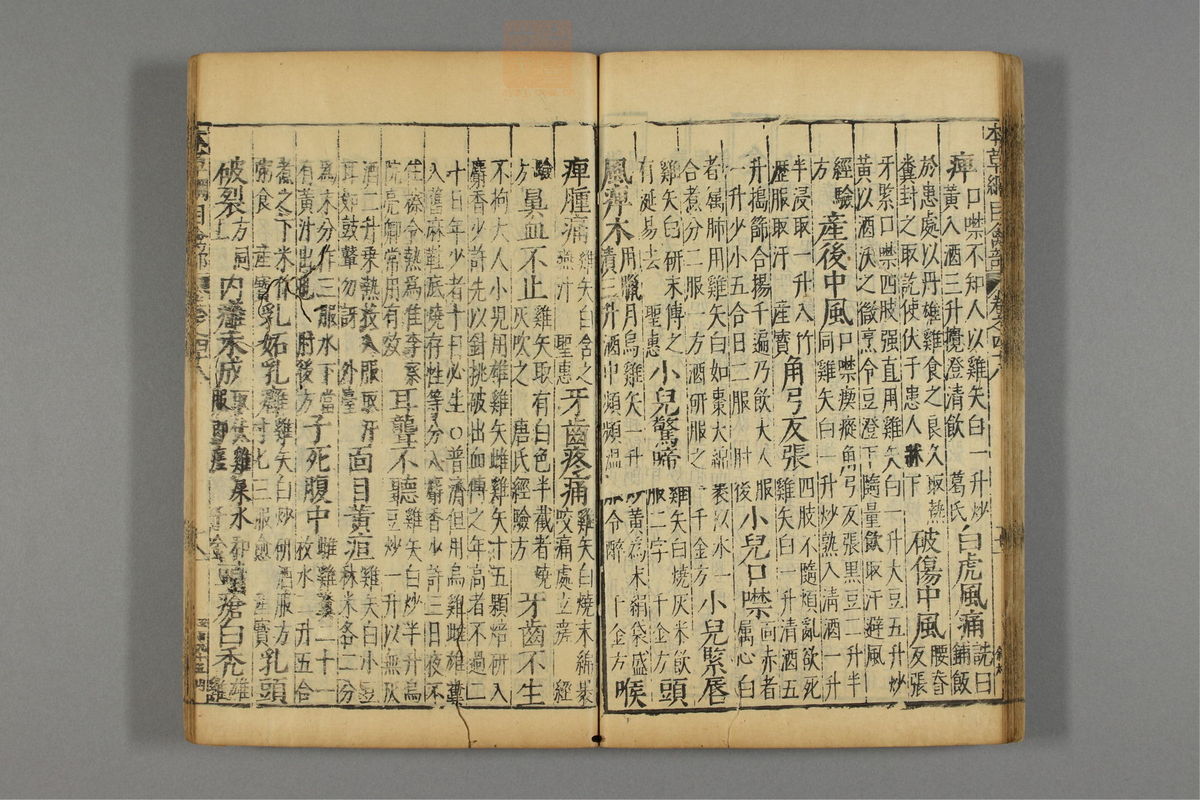 本草綱目禽部 卷之四十八
痺 口噤不知人以雞矢白一升炒
黃入酒三升攪澄清飲 葛氏
白虎風痛 詵曰
鋪飯
於患處以丹雄雞食之良久取熱
糞封之取訖使伏于患人牀下
破傷中風 腰脊
反張
牙緊口噤四肢强直用雞矢白一升大豆五升炒
黃以酒沃之微烹令豆澄下隨量飲取汗避風
經驗
方
產後中風 口噤瘈瘲角弓反張黑豆二升半
同雞矢白一升炒熟入清酒一升
半浸取一升入竹
瀝服取汗 產寶
角弓反張 四肢不隨煩亂欲死
雞矢白一升清酒五
升搗篩合揚千遍乃飲大人服
一升少小五合日二服 肘後
小兒口噤 面赤者
屬心白
者屬肺用雞矢白如棗大綿裹以水一
合煮分二服一方酒研服之 千金方
小兒緊唇
雞矢白研末傅之
有涎易去 聖惠
小兒驚啼 雞矢白燒灰米飲
服二字 千金方
頭
風痺木 用臘月烏雞矢一升炒黃為末絹袋盛
漬三升酒中頻頻溫服令醉 千金方
喉
痺腫痛 雞矢白含之
嚥汁 聖惠
牙齒疼痛 雞矢白燒末綿裹
咬痛處立瘥 經
驗
方
鼻血不止 雞矢取有白色半截者燒
灰吹之 唐氏經驗方
牙齒不生
不拘大人小兒用雄雞矢雌雞矢十五顆焙研入
麝香少許先以針挑破出血傅之年高者不過二
十日年少者十日必生○普濟但用烏雞雌雄糞
入舊麻鞋底燒存性等分入麝香少許三日夜不
住擦令熱為佳李察
院亮卿常用有效
耳聾不聽 雞矢白炒半升烏
豆炒一升以無灰
酒二升乘熱投入服取汗
耳如鼓鼙勿訝 外臺
面目黃疸 雞矢白小豆
秫米各二分
為末分作三服水下當
有黃汁出也 肘後方
子死腹中 雌雞糞二十一
枚水二升五合
煮之下米作
粥食 產寶
乳妬乳癰 雞矢白炒研酒服方
寸匕三服愈 產寶
乳頭
破裂 方同
上
內癰未成 取伏雞屎水和
服即瘥
瘡白禿 雄
雞
本草綱目禽部 卷之四十八